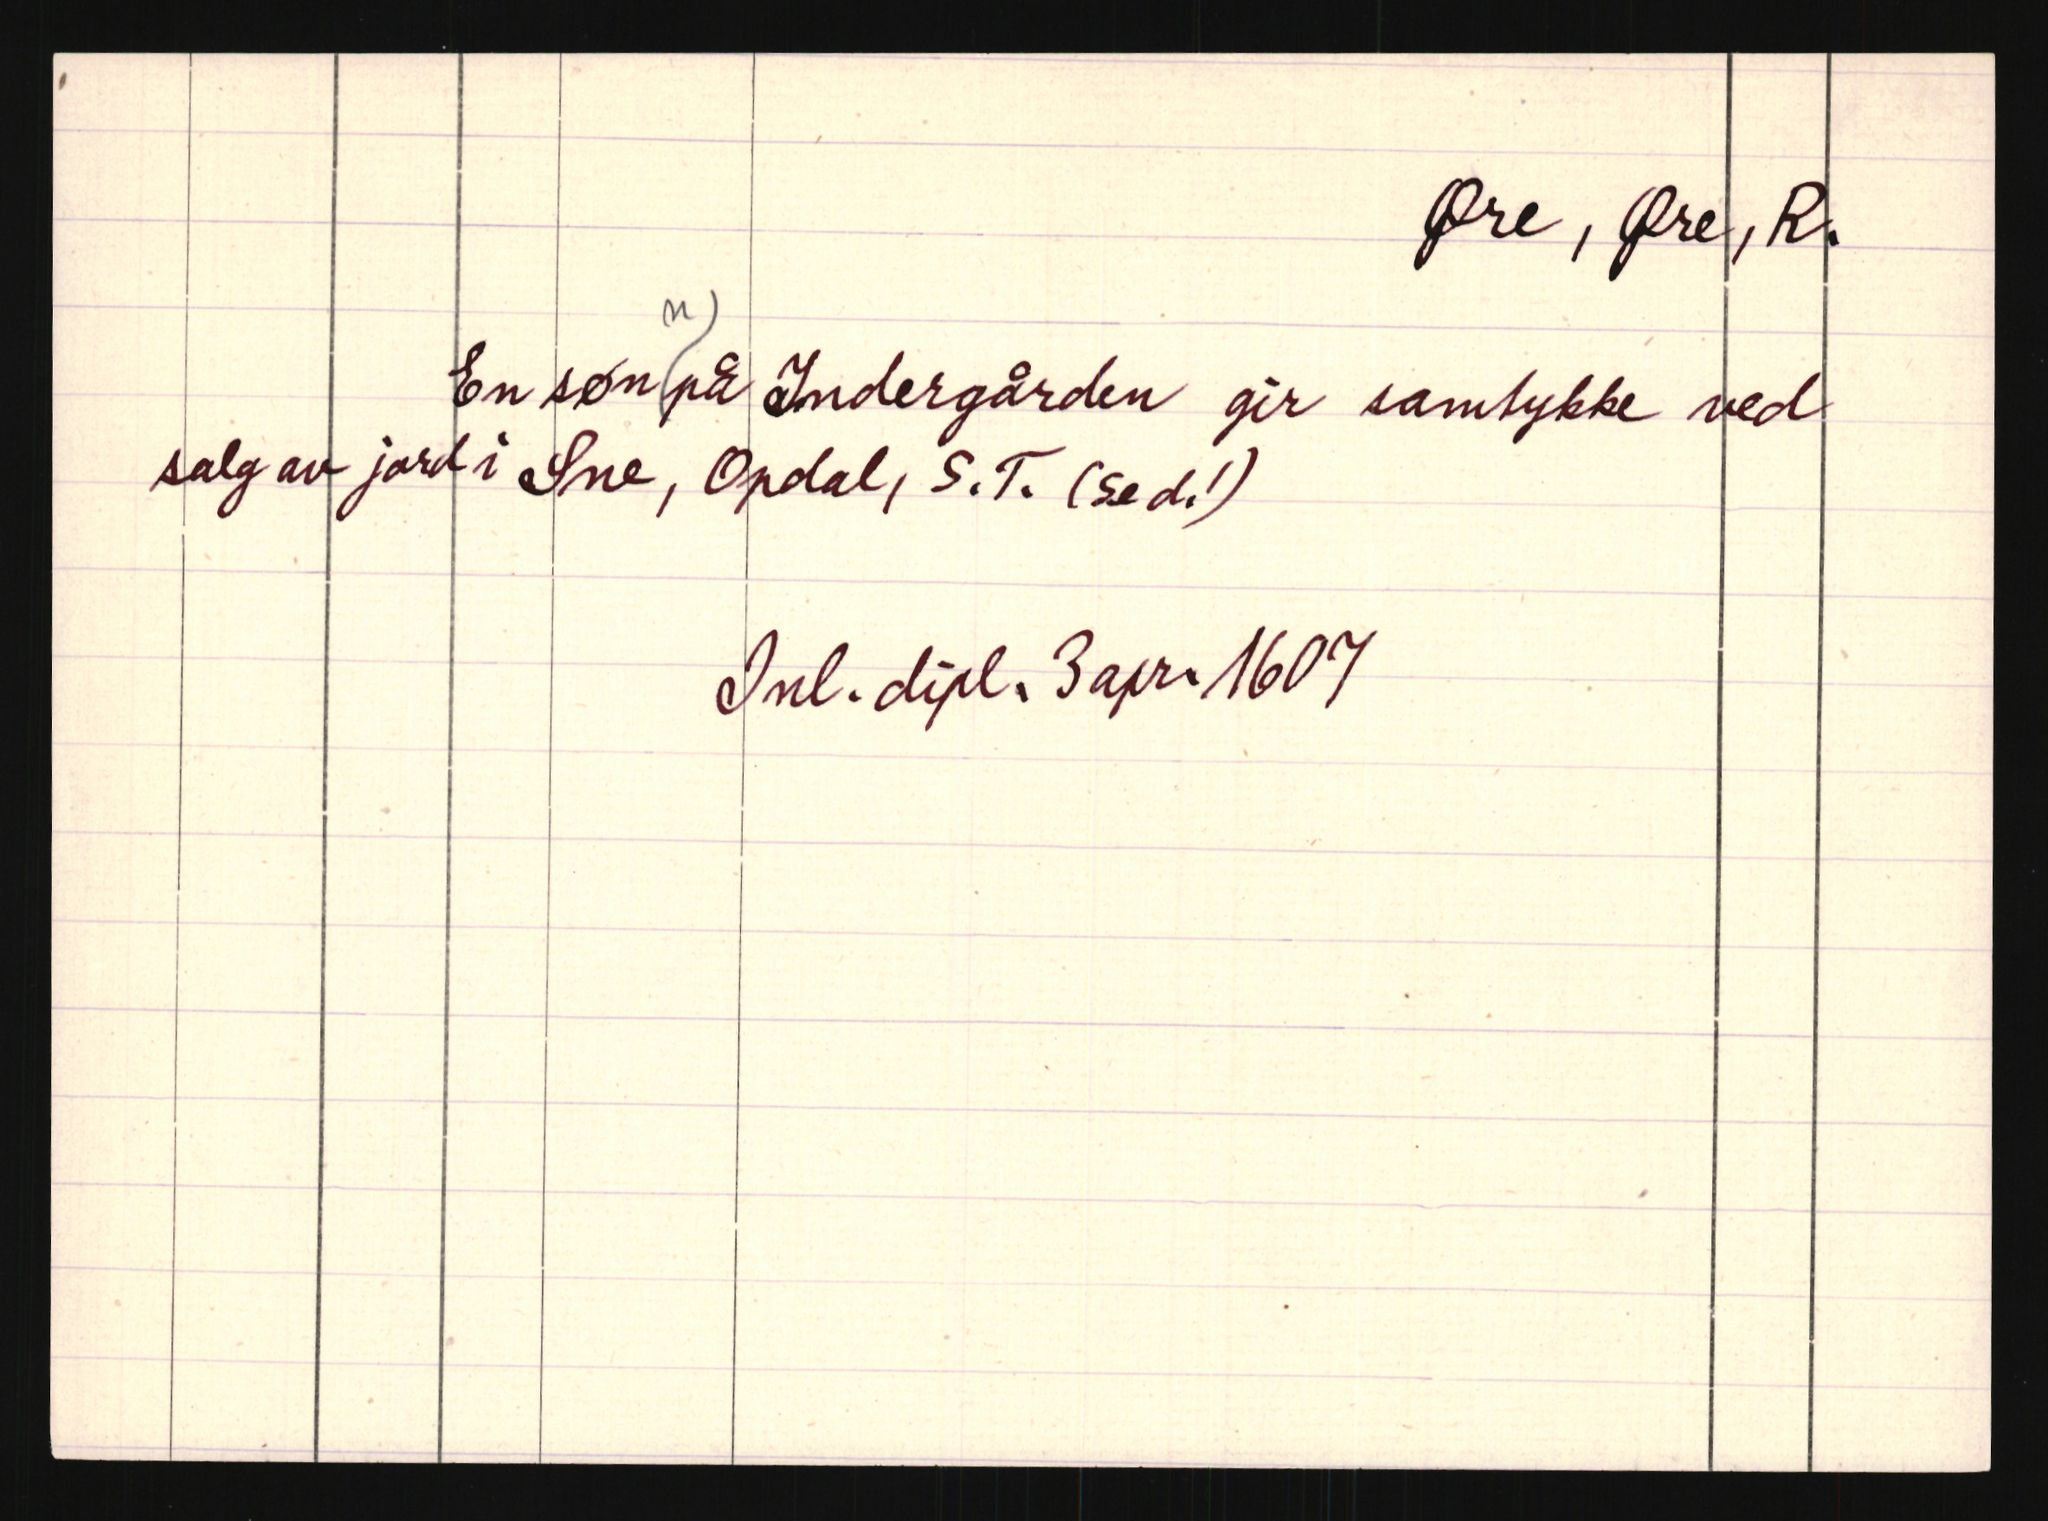 Øre, Øre, R.
n)
En søn på Indergården gir samtykke ved
salg av jord i Sne, Opdal, S.T. (se d.!)
Inl. dipl. 3 apr. 1607